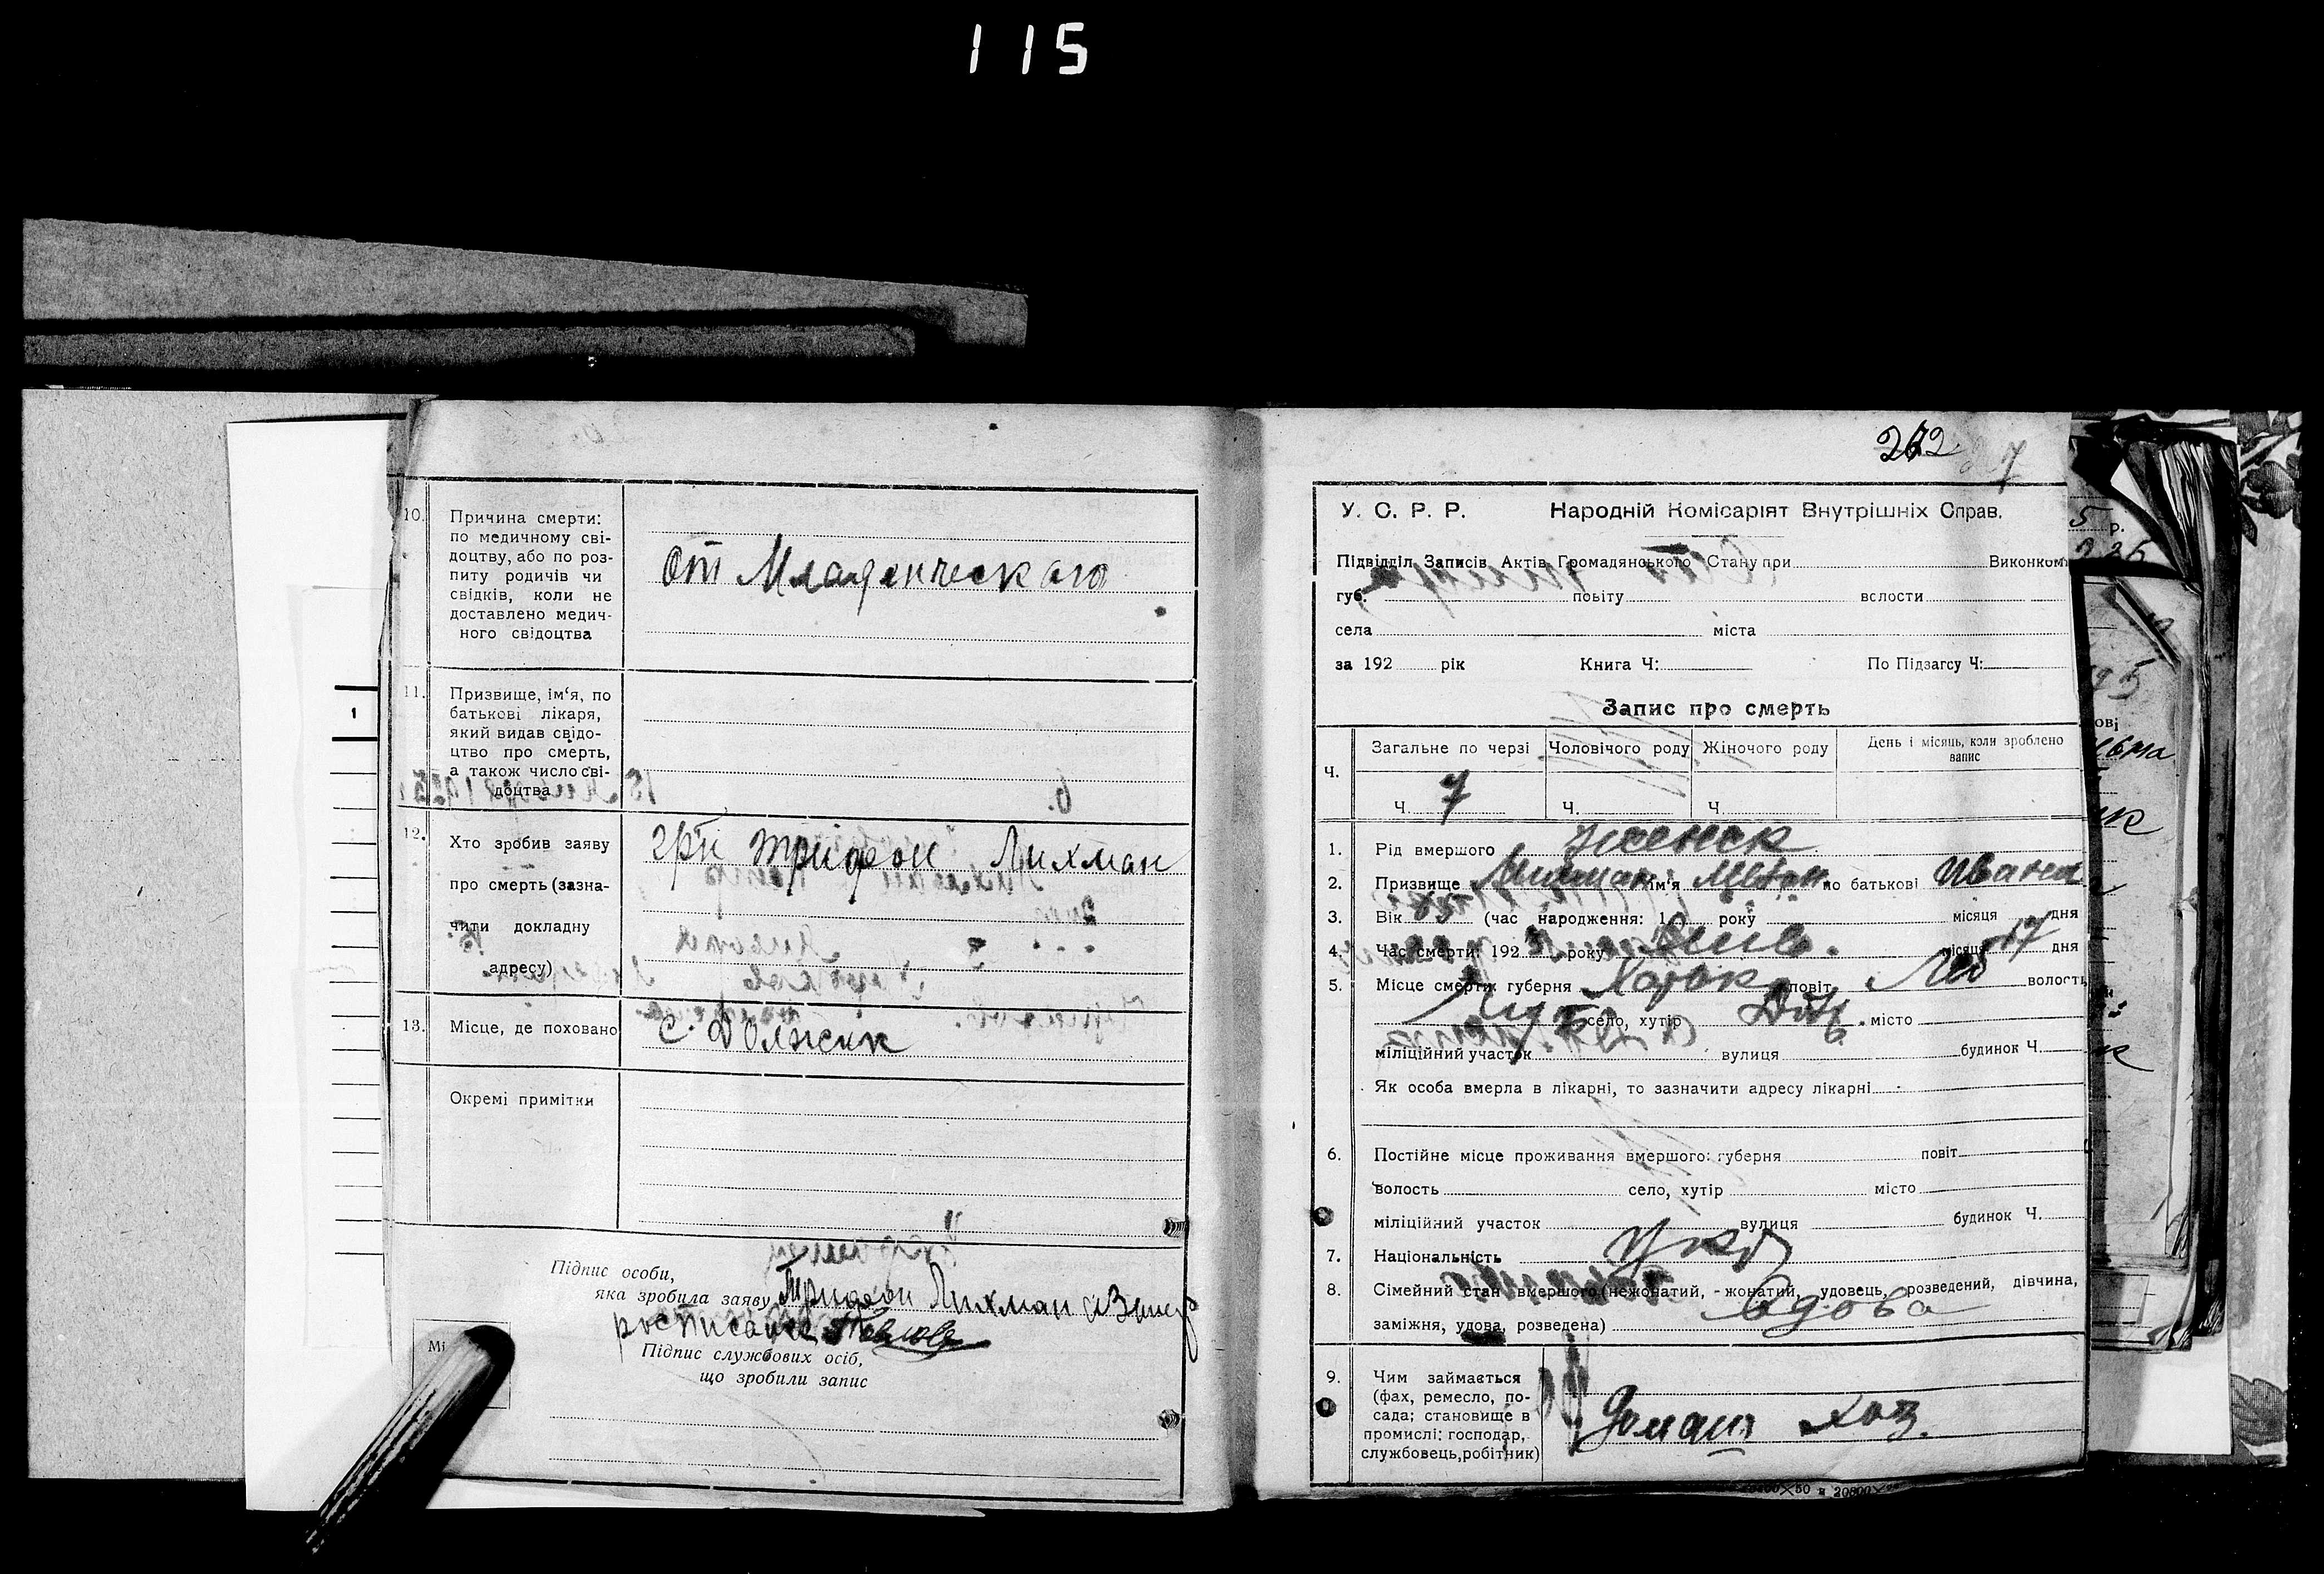 115
10. Причина смерти:
по медичному сві-
доцтву, або по роз-
питу родичів чи
свідків, коли не
доставлено медич-
ного свідоцтва
От Младенческаго
11. Призвище, ім‘я, по
батькові лікаря,
який видав свідо-
цтво про смерть,
а також число сві-
доцтва
12. Хто зробив заяву
про смерть (зазна-
чити докладну
адресу)
гр‑н Трифон Лихман
13. Місце, де поховано
с. Должик
Окремі примітки
Підпис особи,
яка зробила заяву Трифон Лихман
Підпис службових осіб,
що зробили запис
Мі
1
262 7
У. С. Р. Р. Народній Комісаріят Внутрішніх Справ.
Підвідділ Записів Актів Громадянського Стану при Виконком
губ. повіту вслости
села міста
за 192 рік Книга Ч: По Підзагсу Ч:
Запис про смерть
Ч. Загальне по черзі Чоловічого роду Жіночого роду День і місяць, коли зроблено
вапис
Ч. 7 Ч. Ч
1. Рід вмершого женск
2. Призвище ім‘я по батькові Ивана
3. Вік 85 (час народження: 1 року місяця дня
4. Час смерти: 192 року місяця 17 дня
5. Місце смерти: губерня Харьк повіт волость
село, хутір місто
міліційний участок вулиця будинок Ч.
Як особа вмерла в лікарні, то зазначити адресу лікарні
6. Постійне місце проживання вмершого: губерня повіт
волость село, хутір місто
міліційний участок вулиця будинок Ч.
7. Національність Укр
8. Сімейний стан вмершого (нежонатий, - жонатий, удовець, розведений, дівчина,
заміжня, удова, розведена) Вдова
9. Чим займається
(фах, ремесло, по-
сада; становище в
промислі: господар,
службовець, робітник)
Домаш хоз.